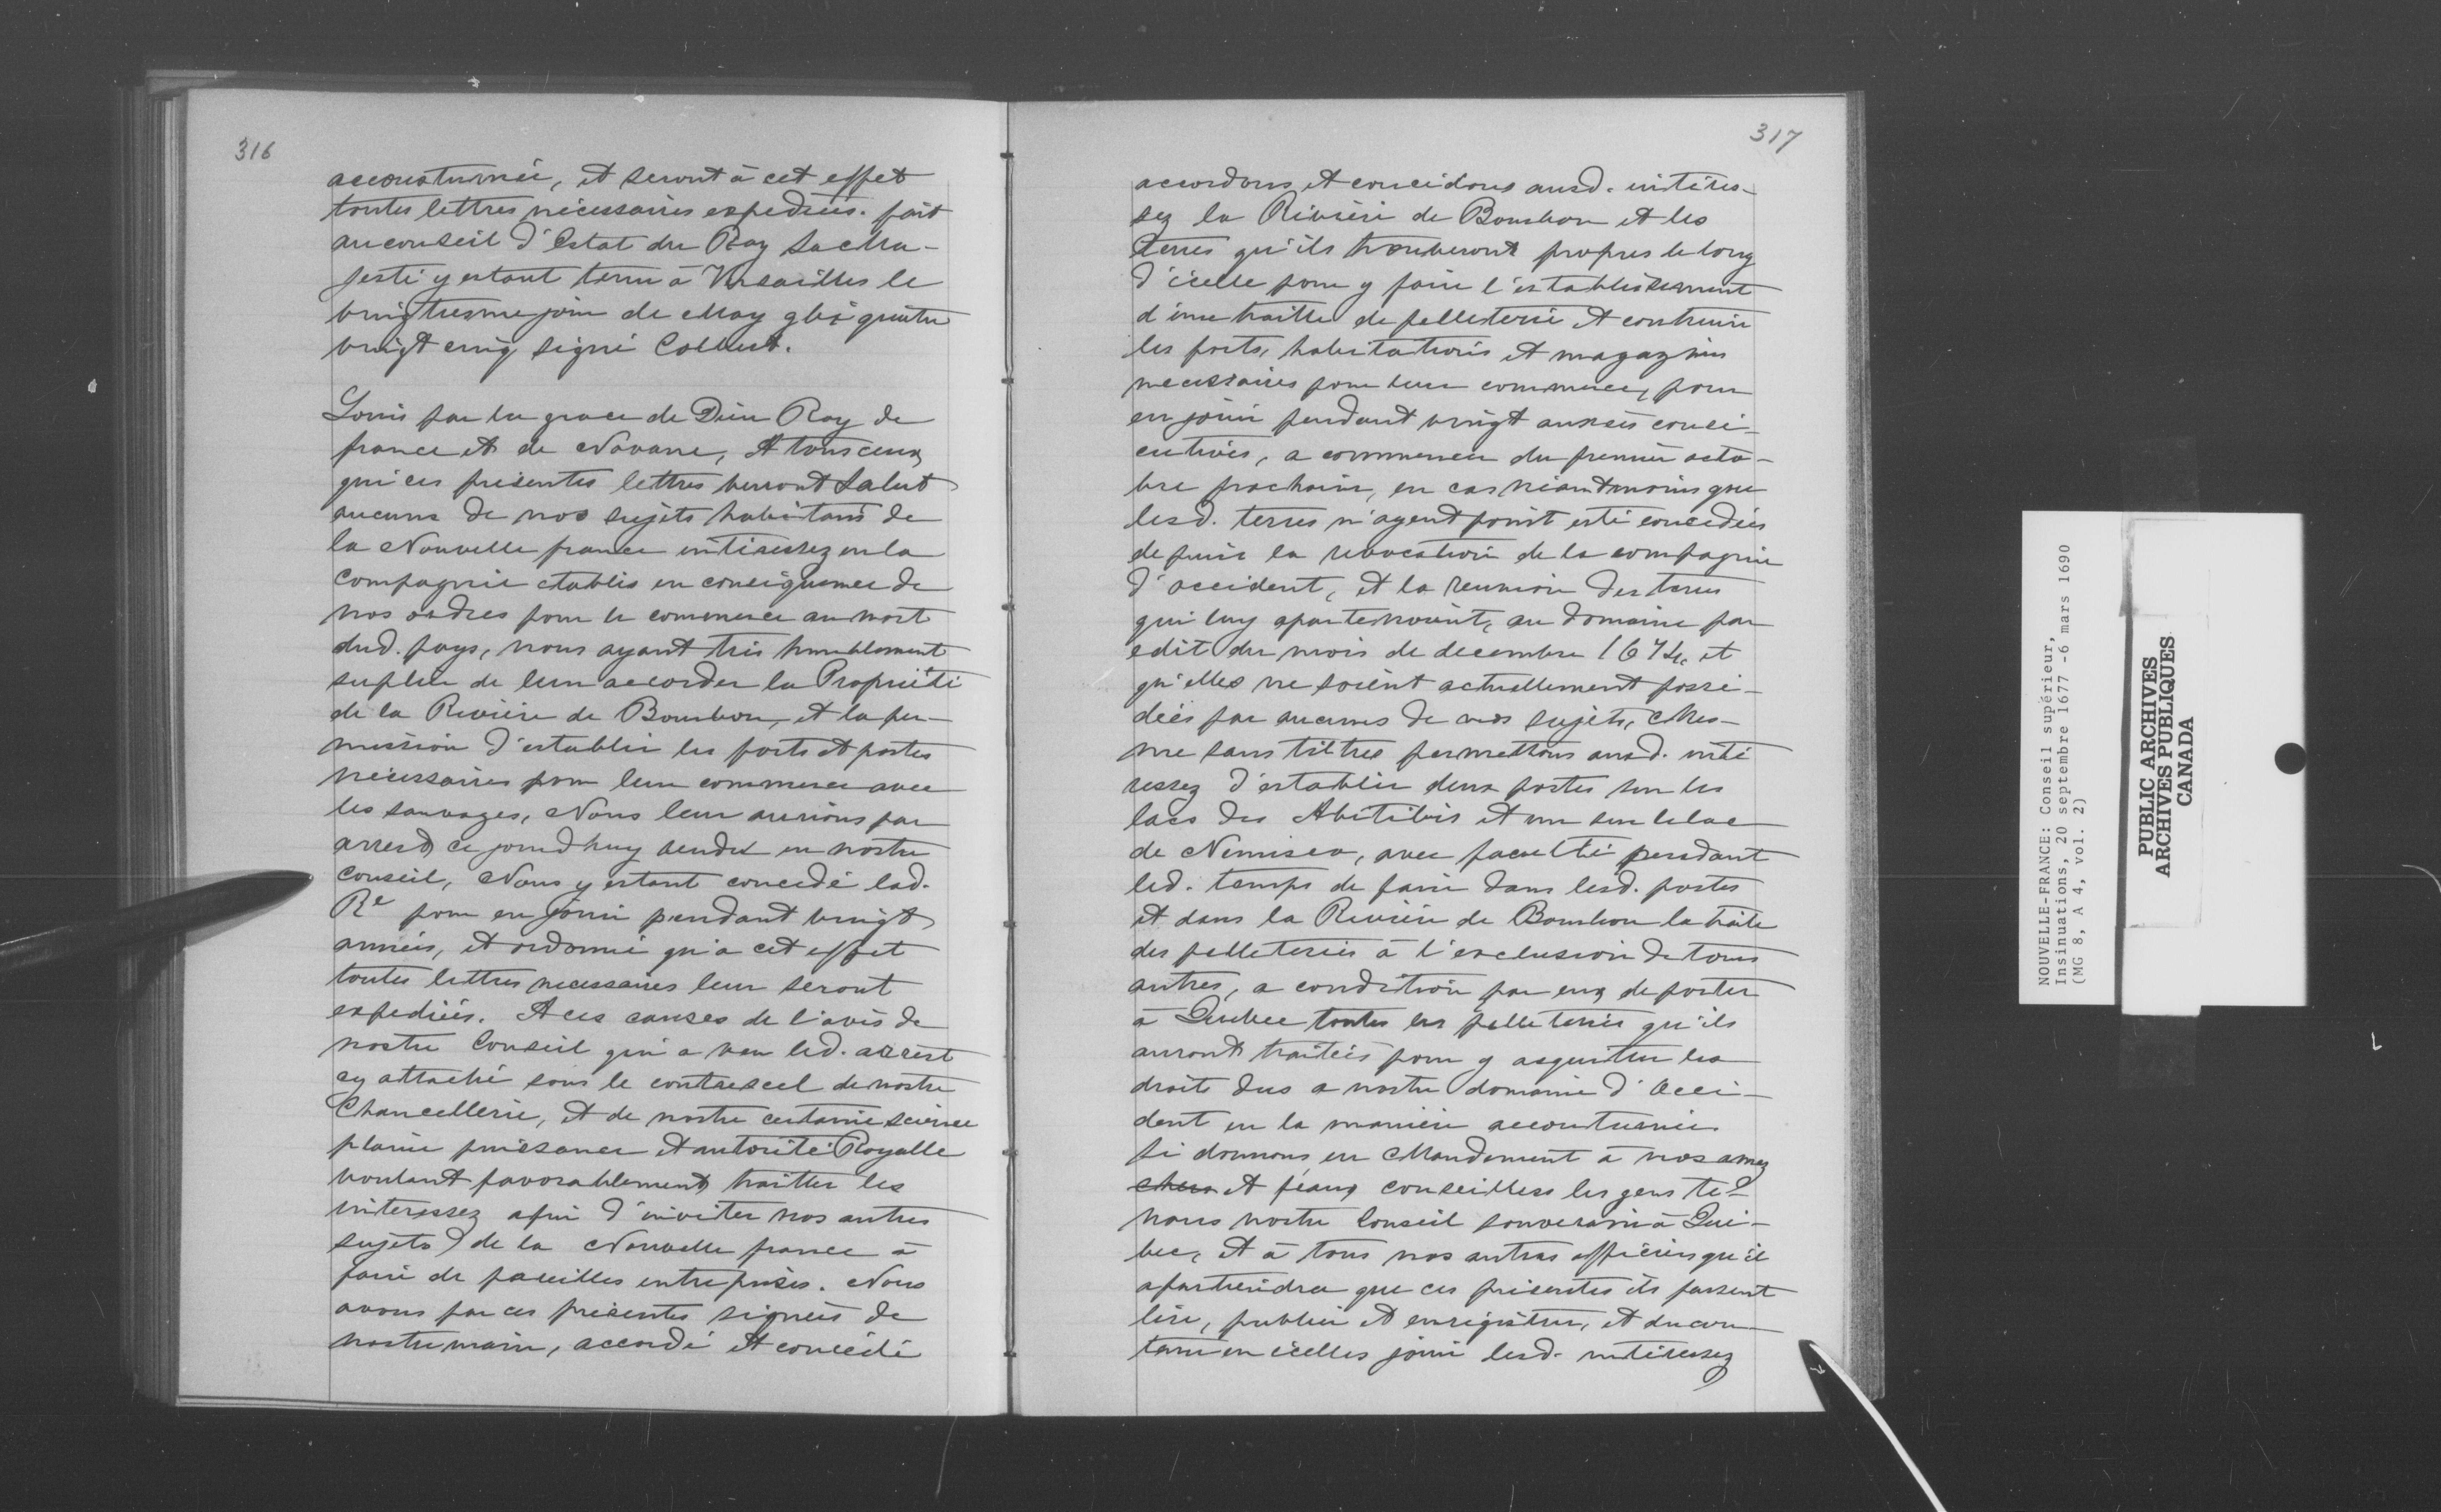 316
accoustumée, et seront à cet effet
toutes lettres nécessaires expediées. fait
au conseil d'Estat du Roy Sa Ma-
jesté y estant tenu à Versailles le
vingtiesme jour de May gbi quatre
vingt cinq signé Colbert.
Louis par la grace de Dieu Roy de
france et de Navarre, A tous ceux
qui ces présentes lettres verront Salut
aucuns de nos sujets habitans de
la Nouvelle france intéressez en la
Compagnie establie en conséquence de
nos ordres pour le commerce au nort
dud. pays, nous ayant très humblement
suplié de leur accorder la Propriété
de la Rivière de Bourbon, et la per-
mission d'establir les forts et postes
nécessaires pour leur commerce avec
les sauvages, Nous leur aurions par
arrest ce jourd'huy rendu en nostre
Conseil, Nous y estant concedé lad.
Re pour en jouir pendant vingt
années, et ordonné qu'à cet effet
toutes lettres necessaires leur seront
expediées. A ces causes de l'avis de
nostre Conseil qui a veu led. arrest
cy attaché sous le contrescel de nostre
Chancellerie, et de nostre certaine science
plaine puissance et autorité Royalle
voulant favorablement traitter les
interessez afin d'inviter nos autres
sujets de la Nouvelle france à
faire de pareilles entreprises. Nous
avons par ces présentes signées de
nostre main, accordé et concédé
317
accordons et concédons ausd. intéres-
sez la Rivière de Bourbon et les
terres qu'ils trouveront propres le long
d'icelle pour y faire l'establissement
d'une traitte de pelleterie et construire
les forts, habitations et magazins
necessaires pour leur commerce, pour
en jouir pendant vingt années consé-
cutives, a commencer du premier octo-
bre prochain, en cas néantmoins que
lesd. terres n'ayent point esté concedées
depuis la revocation de la compagnie
d'occident, et la reunion des terres
qui luy apartenoient, au domaine par
edit du mois de decembre 1674, et
qu'elles ne soient actuellement possé-
dées par aucuns de nos sujets, Mes-
me sans tiltres permettons ausd. inté
ressez d'establir deux postes sur les
lacs des Abitibis et un sur le lac
de Nemisco, avec faculté pendant
led. temps de faire dans lesd. postes
et dans la Rivière de Bourbon la traite
des pelleteries à l'exclusion de tous
autres, a condition par eux de porter
à Quebec toutes les pelleteries qu'ils
auront traitées pour y acquitter les
droits dus a nostre domaine d'Occi-
dent en la manière accoutumée.
Si donnons en Mandement à nos amez
chers et féaux conseillers les gens te-
nans nostre Conseil souverain à Qué-
bec, et à tous nos autres officiers qu'il
apartiendra que ces présentes ils fassent
lire, publier et enregistrer, et du con-
tenu en icelles jouir lesd. intéressez
NOUVELLE-FRANCE: Conseil supérieur,
Insinuations, 20 septembre 1677 -6 mars 1690
(MG 8, A 4, vol. 2)
PUBLIC ARCHIVES
ARCHIVES PUBLIQUES
CANADA